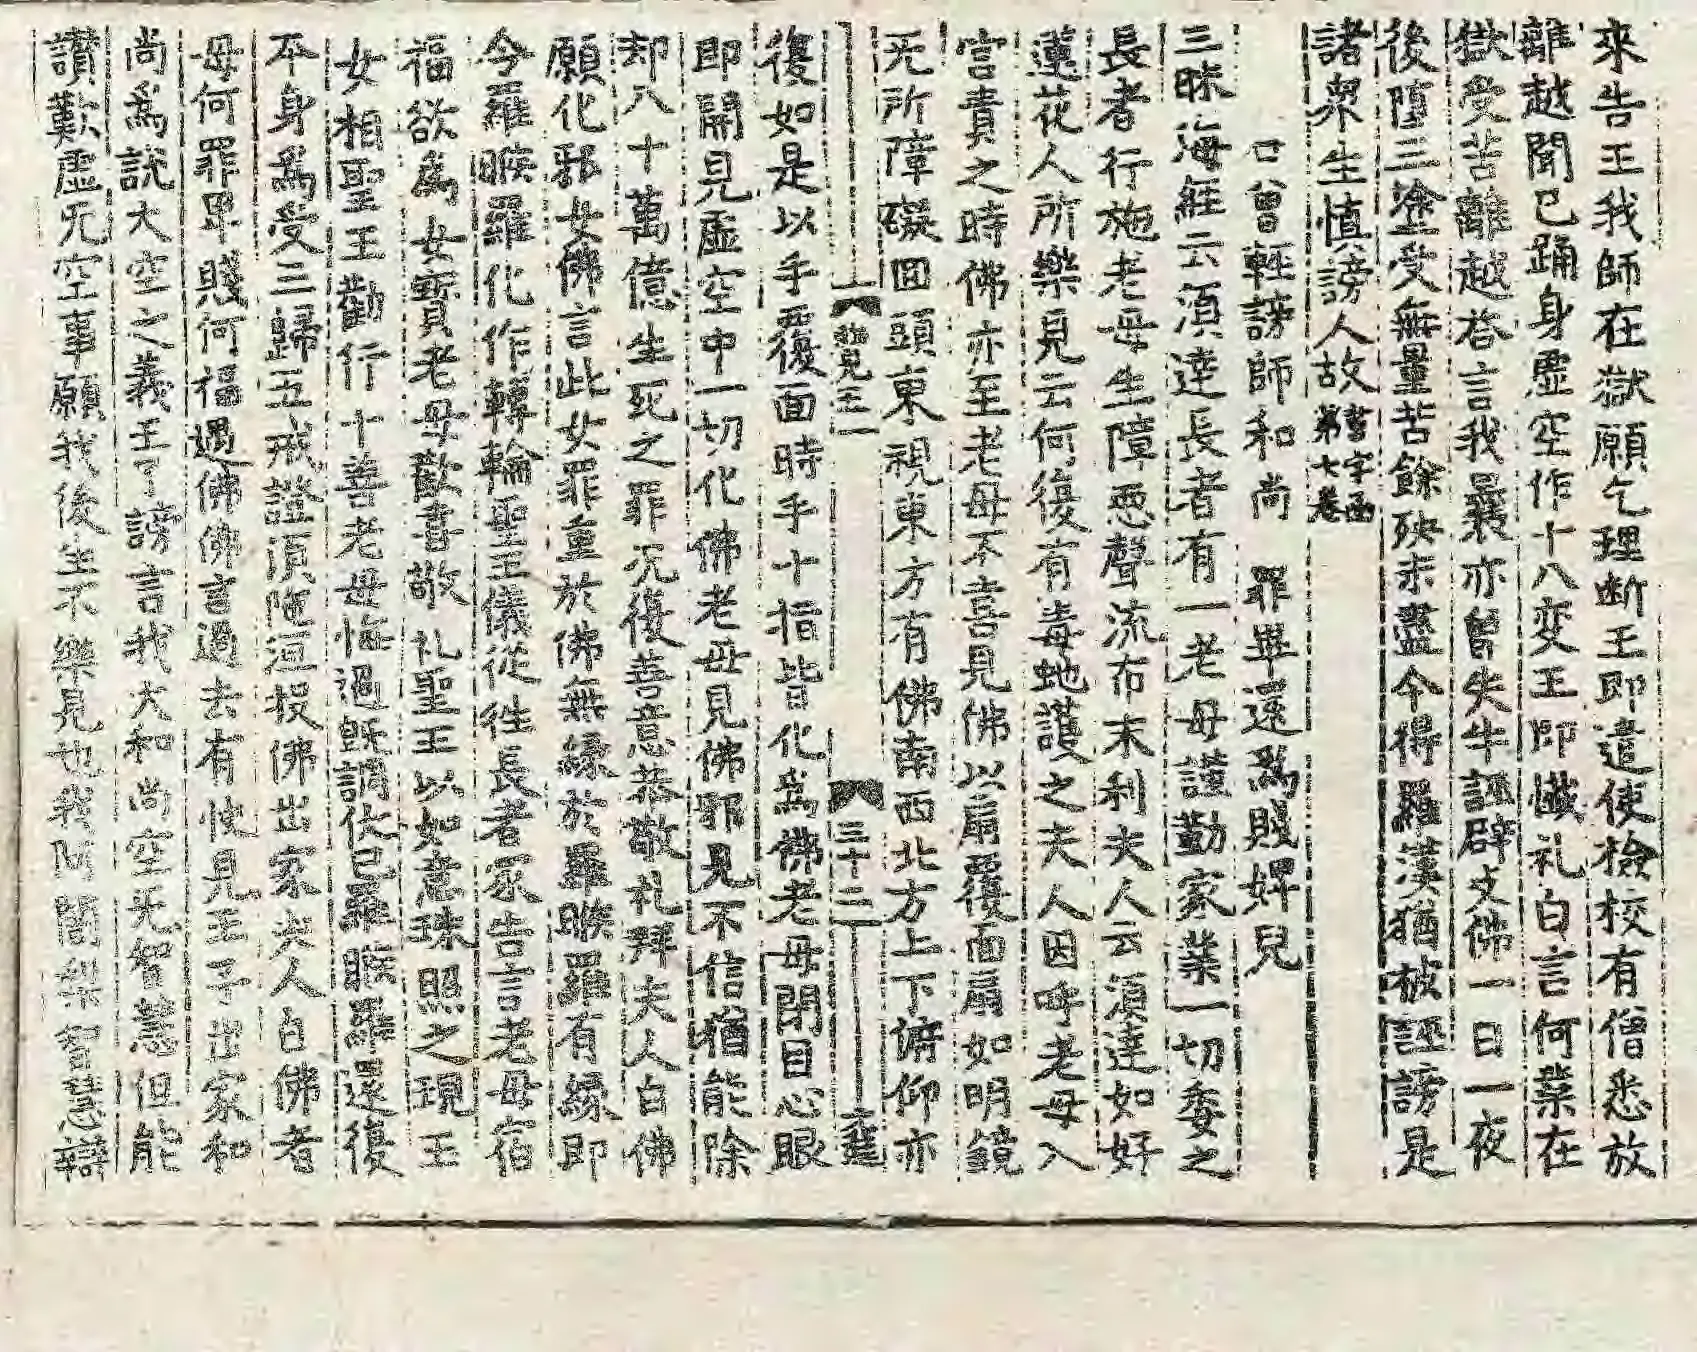 來告王我師在獄願乞理断王即遣使撿校有僧悉放
離越聞已踊身虛空作十八变王即懺礼白言何業在
獄受苦離越荅言我曩亦曾失牛誣辟支佛一日一夜
後墮三塗受無量苦餘殃未盡今得羅漢猶被誣謗是
諸衆生慎謗人故
第七卷
口曾輕謗師和尚 罪畢還爲賤婢兒
三昧海経云湏達長者有一老母謹勤家業一切委之
長者行施老母生障悪聲流布末利夫人云湏達如好
蓮花人所樂見云何復有毒蛇護之夫人因呼老母入
宫責之時佛亦至老母不喜見佛以扇覆面扇如明鏡
无所障礙囬頭東視東方有佛南西北方上下俯仰亦
三十三
復如是以手覆面時手十指皆化爲佛老母閉目心眼
即開見虛空中一切化佛老母見佛邪見不信猶能除
却八十萬億生死之罪况復善意恭敬礼拜夫人白佛
願化邪女佛言此女罪重於佛無緣於羅睺羅有緣即
今羅睺羅化作轉輪聖王儀從徃長者家告言老母宿
福欲爲女寶老母歡喜敬礼聖王以如意珠照之現王
女相聖王勸行十善老母悔過旣調伏已羅睺羅還復
夲身爲受三歸五戒證湏陁洹投佛出家夫人白佛者
母何罪卑賤何福遇佛佛言過去有快見王子出家和
尚爲說大空之義王子謗言我大和尚空无智慧但能
讃歎虛无空事願我後生不樂見也我阿闍梨智慧辯